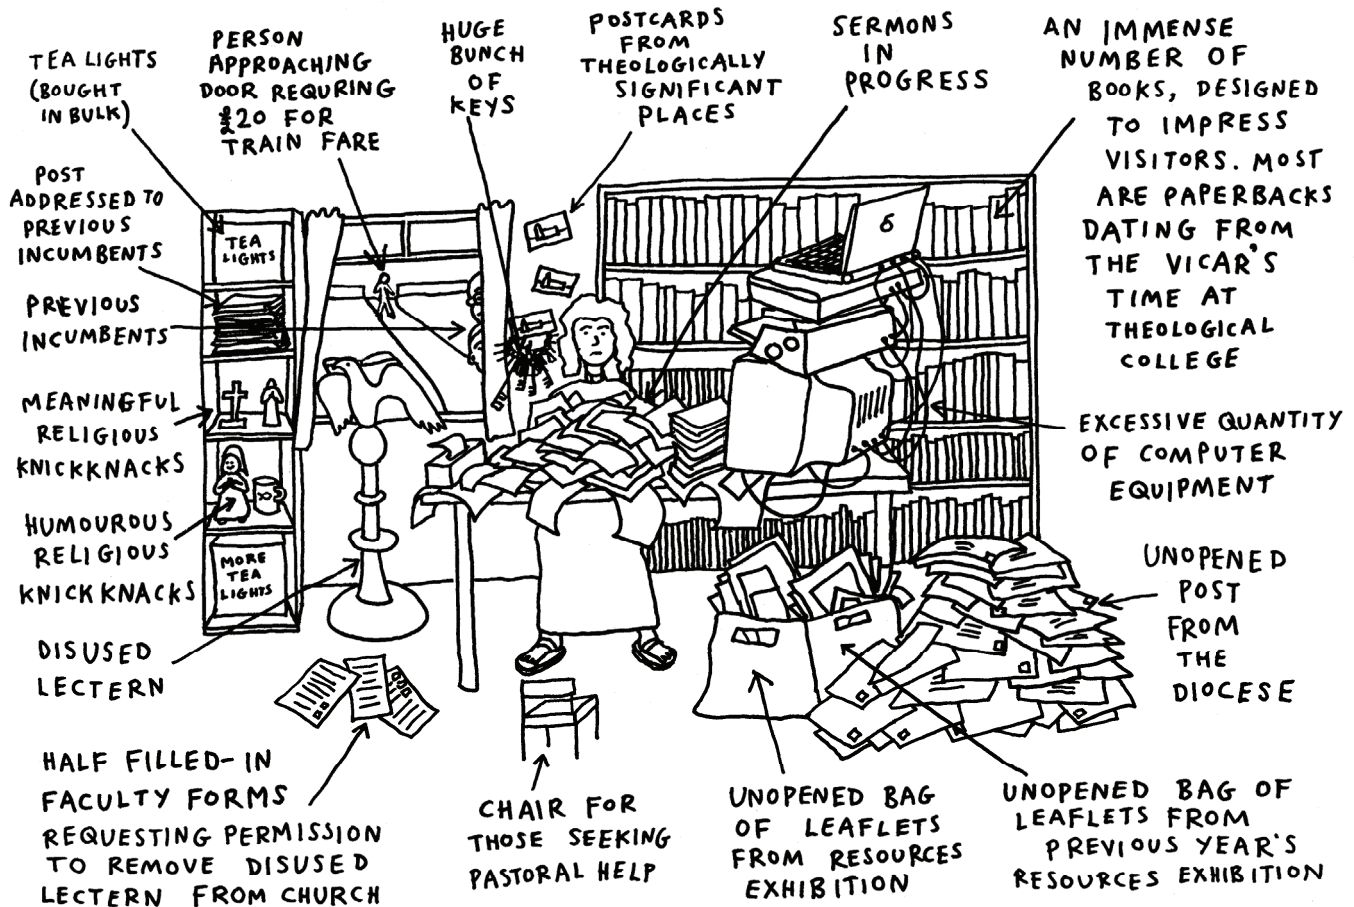 TEA LIGHTS
(BOUGHT
IN BULK)
PERSON
APPROACHING
DOOR REQURING
£20 FOR
TRAIN FARE
HUGE
BUNCH
OF
KEYS
POSTCARDS
FROM
THEOLOGICALLY
SIGNIFICANT
PLACES
SERMONS
IN
PROGRESS
AN IMMENSE
NUMBER OF
BOOKS, DESIGNED
TO IMPRESS
VISITORS. MOST
ARE PAPERBACKS
DATING FROM
THE VICAR'S
TIME AT
THEOLOGICAL
COLLEGE
POST
ADDRESSED TO
PREVIOUS
INCUMBENTS
PREVIOUS
INCUMBENTS
MEANINGFUL
RELIGIOUS
KNICKKNACKS
HUMOUROUS
RELIGIOUS
KNICKKNACKS
DISUSED
LECTERN
TEA
LIGHTS
MORE
TEA
LIGHTS
EXCESSIVE QUANTITY
OF COMPUTER
EQUIPMENT
UNOPENED
POST
FROM
THE
DIOCESE
HALF FILLED-IN
FACULTY FORMS
REQUESTING PERMISSION
TO REMOVE DISUSED
LECTERN FROM CHURCH
CHAIR FOR
THOSE SEEKING
PASTORAL HELP
UNOPENED BAG
OF LEAFLETS
FROM RESOURCES
EXHIBITION
UNOPENED BAG OF
LEAFLETS FROM
PREVIOUS YEAR'S
RESOURCES EXHIBITION